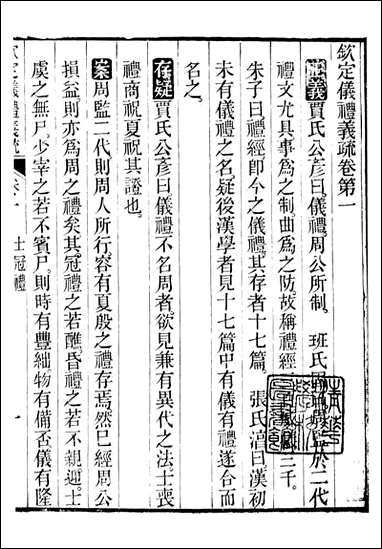 欽定儀禮義疏卷第一
正義賈氏公彥曰儀禮周公所制 班氏監於二代
禮文尤具事為之制曲為之防故稱禮經三千。
朱子曰禮經即今之儀禮其存者十七篇 張氏淳曰漢初
未有儀禮之名疑後漢學者見十七篇中有儀有禮遂合而
名之。
存疑賈氏公彥曰儀禮不名周者欲見兼有異代之法士喪
禮商祝夏祝其證也
案周監二代則周人所行容有夏殷之禮存焉然已經周公
損益則亦為周之禮矣其冠禮之若醮昏禮之若不親迎士
虞之無尸少宰之若不賓尸則時有豐絀物有備否儀有隆
欽定儀禮義疏 卷一 士冠禮 一